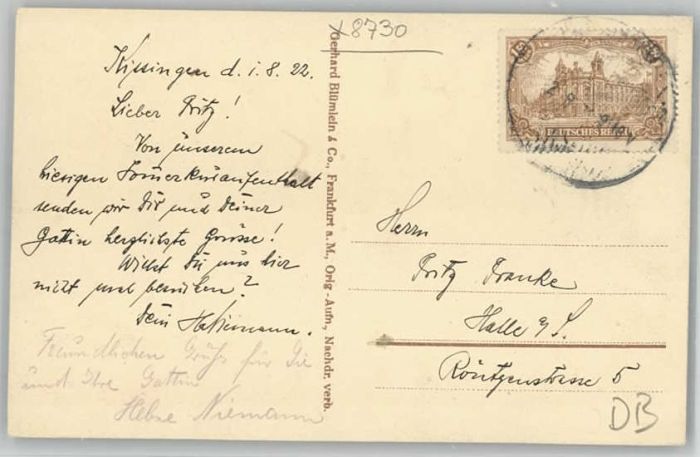 x8730
Kissingen d. 1.8.22.
Lieber Fritz!
Von unserem
hiesigen
senden wir Dir und Deiner
Gattin herzlichste Grüsse!
Willst Du uns hier
nicht mal besuchen?
Dein
Freundlichen Gruß für Sie
und Ihre Gattin
Niemann
Gerhard Blümlein & Co., Frankfurt a. M., Orig.-Aufn., Nachdr. verb.
DEUTSCHES REICH
Herrn
Fritz Franke
Halle a/S.
Röntgenstrasse 5
DB